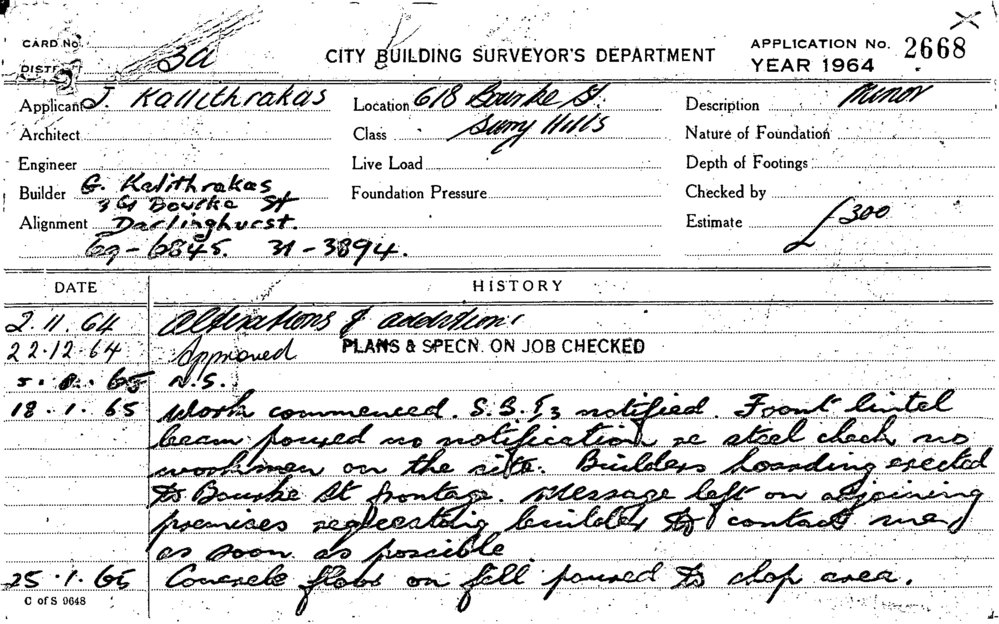 CARD No. 3a
DISTRICT
CITY BUILDING SURVEYOR'S DEPARTMENT
APPLICATION No. 2668
YEAR 1964
Applicant J. Kallithrakas
Location 618 Bourke St.
Description Minor
Architect
Class Surry Hills
Nature of Foundation
Engineer
Live Load
Depth of Footings
Builder G. Kalithrakas
Foundation Pressure
Checked by
361 Bourke St
Alignment Darlinghurst.
Estimate £300
69-6845. 31-3894.
DATE HISTORY
2.11.64 Alterations & additions
22.12.64 Approved PLANS & SPECN. ON JOB CHECKED
5.1.65 N.S.
18.1.65 Work commenced. notified. Front lintel
beam poured no notification re steel check no
workmen on the site. Builders hoarding erected
to Bourke St frontage. Message left on adjoining
premises requesting builder to contact me
as soon as possible
25.1.65 Concrete floor on fill poured to shop area.
C of S 9648